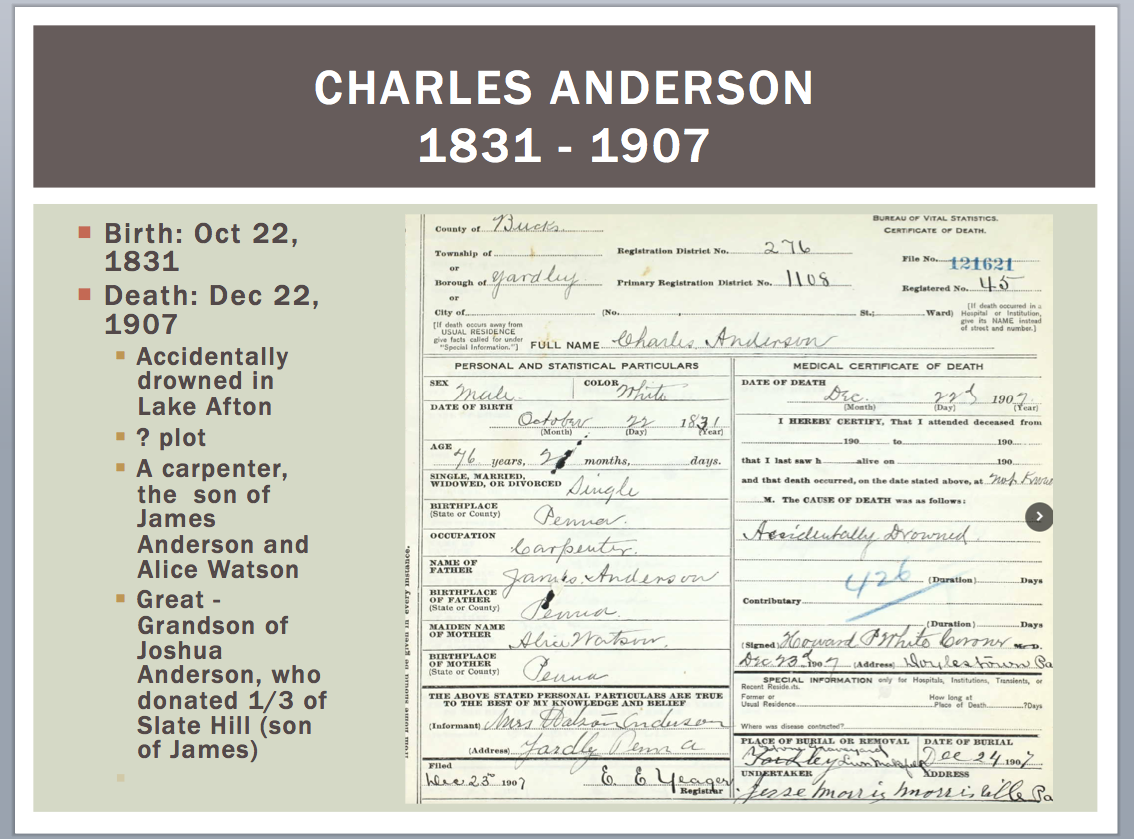 CHARLES ANDERSON
1831 - 1907
Birth: Oct 22,
1831
Death: Dec 22,
1907
Accidentally
drowned in
Lake Afton
? plot
A carpenter,
the son of
James
Anderson and
Alice Watson
Great -
Grandson of
Joshua
Anderson, who
donated 1/3 of
Slate Hill (son
of James)
BUREAU OF VITAL STATISTICS.
CERTIFICATE OF DEATH.
County of Bucks
Township of
or
Borough of Yardley
or
City of
Registration District No. 276
Primary Registration District No. 1108
File No. 121621
Registered No. 45
(No. , St.; Ward)
[If death occurred in a
Hospital or Institution,
give its NAME instead
of street and number.]
[If death occurs away from
USUAL RESIDENCE
give facts called for under
"Special Information."]
FULL NAME Charles Anderson
PERSONAL AND STATISTICAL PARTICULARS
SEX Male
COLOR White
DATE OF BIRTH
October 22 1831
(Month) (Day) (Year)
AGE
76 years, 2 months, days.
SINGLE, MARRIED,
WIDOWED, OR DIVORCED Single
BIRTHPLACE
(State or County) Penna.
OCCUPATION
Carpenter.
NAME OF
FATHER James Anderson
BIRTHPLACE
OF FATHER
(State or County) Penna.
MAIDEN NAME
OF MOTHER Alice Watson.
BIRTHPLACE
OF MOTHER
(State or County) Penna
THE ABOVE STATED PERSONAL PARTICULARS ARE TRUE
TO THE BEST OF MY KNOWLEDGE AND BELIEF
(Informant) Mrs Watson Anderson
(Address) Yardly Penn a
Filed
Dec 23d 1907 E. E Yeager
Registrar
MEDICAL CERTIFICATE OF DEATH
DATE OF DEATH
Dec. 22d 1907.
(Month) (Day) (Year)
I HEREBY CERTIFY, That I attended deceased from
190 to 190
that I last saw h alive on 190
and that death occurred, on the date stated above, at not
M. The CAUSE OF DEATH was as follows:
Accidentally Drowned.
426
(Duration) Days
Contributary
(Duration) Days
(Signed) Howard P White Coroner M.D.
Dec. 23d 1907 (Address) Doylestown Pa
SPECIAL INFORMATION only for Hospitals, Institutions, Transients, or
Recent Residents.
Former or
Usual Residence
How long at
Place of Death ?Days
Where was disease contracted?
PLACE OF BURIAL OR REMOVAL
Yardley
DATE OF BURIAL
Dec 24 1907
UNDERTAKER
ADDRESS
Jesse Morris Morrisville Pa
from home should be given in every instance.